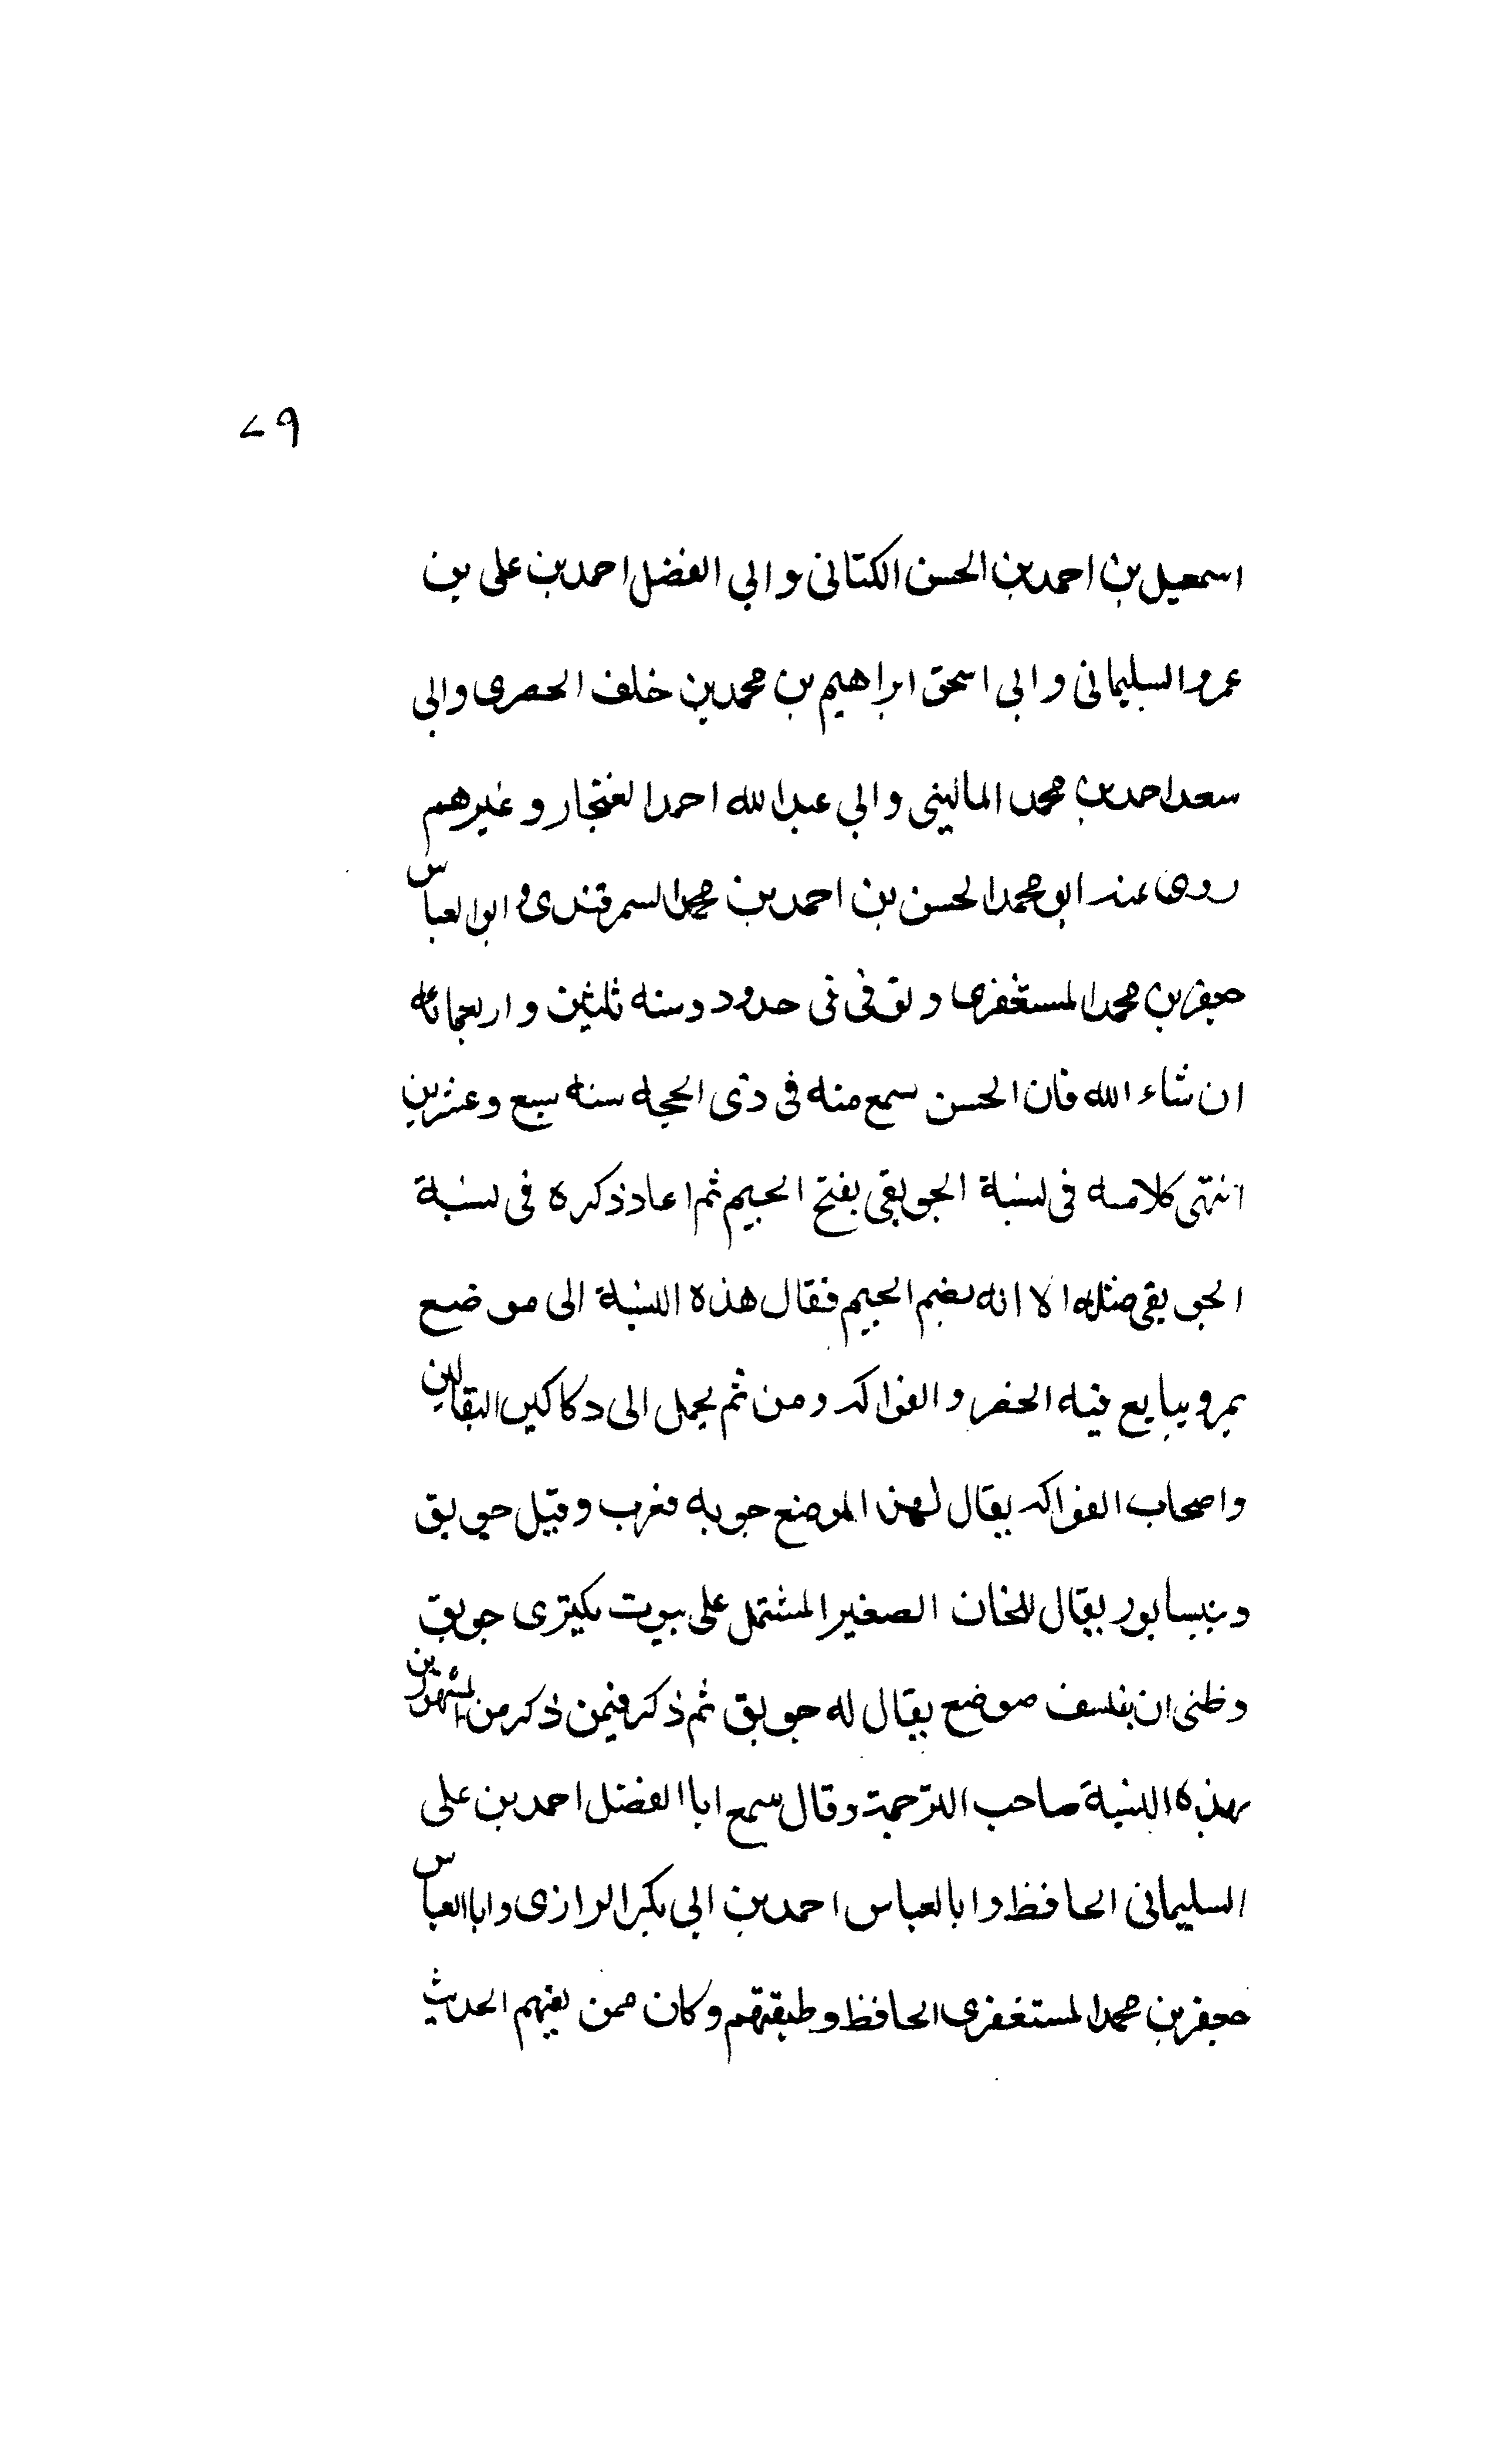 ٧٩
اسمعيل بن احمد بن الحسن الكتانى و ابي الفضل احمد بن على بن
عمرو السليمانى و ابي اسحق ابراهيم بن محمد بن خلف الحصرى وابي
سعد احمد بن محمد المالينى و ابي عبد الله احمد الغنجار و غيرهم
روى عنه ابو محمد الحسن بن احمد بن محمد السمرقندى و ابو العباس
جعفر بن محمد المستغفرى و توفى فى حدود سنه ثلثين و اربعمائه
ان شاء الله فان الحسن سمع منه فى ذى الحجه سنه سبع و عشرين
انتهى كلامه فى نسبة الجوبقى بفتح الجيم ثم اعاد ذكره فى نسبة
الجوبقى مثله الا انه بضم الجيم فقال هذه النسبة الى موضع
بمرو يبايع فيه الخضر و الفواكه و من ثم يحمل الى دكاكين البقالين
و اصحاب الفواكه يقال لهذا الموضع جوبه فعرب و قيل جوبق
و بنيسابور يقال للخان الصغير المشتمل على بيوت بكترى جوبق
و ظنى ان بنسف موضع يقال له جوبق ثم ذكر فيمن ذكر من المشهورين
بهذه النسبة صاحب الترجمة و قال سمع ابا الفضل احمد بن على
السليمانى الحافظ و ابا العباس احمد بن ابي بكر الرازى و ابا العباس
جعفر بن محمد المستغفرى الحافظ و طبقتهم و كان ممن يفهم الحديث